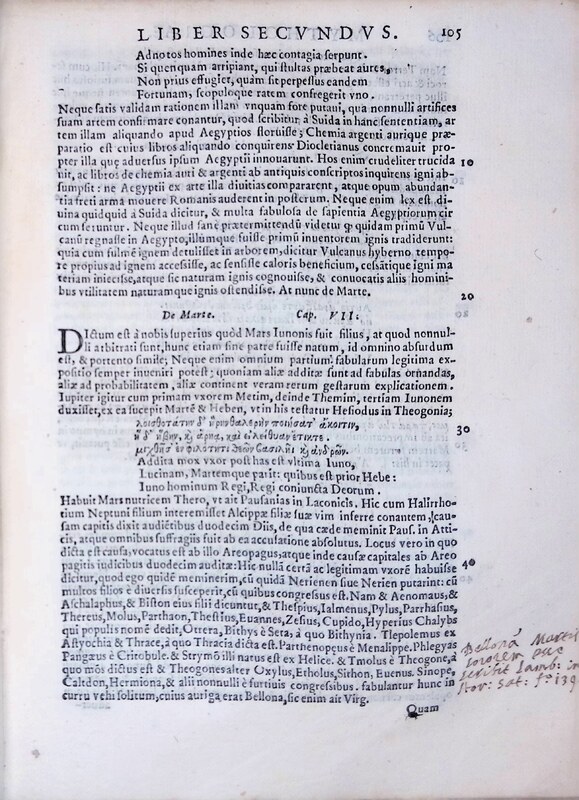 LIBER SECVNDVS. 105
Ad notos homines inde hæc contagia serpunt.
Si quenquam arripiant, qui stultas præbeat aures,
Non prius effugiet, quàm sit perpessus eandem
Fortunam, scopuloque ratem confregerit vno.
Neque satis validam rationem illam vnquam fore putaui, qua nonnulli artifices
suam artem confirmare conantur, quod scribitur à Suida in hanc sententiam, ar
tem illam aliquando apud Aegyptios floruisse; Chemia argenti aurique præ-
paratio est cuius libros aliquando conquirens Diocletianus concremauit pro-
pter illa quę aduersus ipsum Aegyptii innouarunt. Hos enim crudeliter trucida 10
uit, ac libros de chemia auri & argenti ab antiquis conscriptos inquirens igni ab-
sumpsit: ne Aegyptii ex arte illa diuitias compararent, atque opum abundan-
tia freti arma mouere Romanis auderent in posterum. Neque enim lex est di-
uina quidquid à Suida dicitur, & multa fabulosa de sapientia Aegyptiorum cir
cum feruntur. Neque illud sanè prætermittendū videtur ꝙ quidam primū Vul-
canū regnasse in Aegypto, illumque fuisse primū inuentorem ignis tradiderunt:
quia cum fulmē ignem detulisset in arborem, dicitur Vulcanus hyberno tempo-
re propius ad ignem accessisse, ac sensisse caloris beneficium, cessātique igni ma
teriam iniecisse, atque sic naturam ignis cognouisse, & conuocatis aliis homini-
bus vtilitatem naturamque ignis ostendisse. At nunc de Marte. 20
De Marte. Cap. VII.
DIctum est à nobis superius quòd Mars Iunonis fuit filius, at quod nonnul-
li arbitrati sunt, hunc etiam sine patre fuisse natum, id omnino absurdum
est, & portento simile; Neque enim omnium partium fabularum legitima ex-
positio semper inueniri potest; quoniam aliæ additæ sunt ad fabulas ornandas,
aliæ ad probabilitatem, aliæ continent verarum rerum gestarum explicationem.
Iupiter igitur cum primam vxorem Metim, deinde Themim, tertiam Iunonem
duxisset, ex ea suscepit Martē & Heben, vt in his testatur Hesiodus in Theogonia;
λοισθοτάτην δ' ἥρην θαλερὴν ποιήσατ' ἄκοιτιν,
ἡ δ' ἥβην, καὶ ἄρηα, καὶ εἰλείθυαν ἔτικτε. 30
μιχθεῖσ' ἐν φιλότητι θεῶν βασιλῆι καὶ ἀνδρῶν.
Addita mox vxor post has est vltima Iuno,
Lucinam, Martemque parit: quibus est prior Hebe:
Iuno hominum Regi, Regi coniuncta Deorum.
Habuit Mars nutricem Thero, vt ait Pausanias in Laconicis. Hic cum Halirrho-
tium Neptuni filium interemisset Alcippæ filiæ suæ vim inferre conantem, cau-
sam capitis dixit audiētibus duodecim Diis, de qua cæde meminit Paus. in Atti-
cis, atque omnibus suffragiis fuit ab ea accusatione absolutus. Locus vero in quo
dicta est causa, vocatus est ab illo Areopagus, atque inde causæ capitales ab Areo
pagitis iudicibus duodecim auditæ: Hic nulla certā ac legitimam vxorē habuisse 40
dicitur, quod ego quidē meminerim, cū quidā Nerienen siue Nerien putarint: cū
multos filios è diuersis susceperit, cū quibus congressus est. Nam & Aenomaus, &
Aschalaphus, & Biston eius filii dicuntur, & Thespius, Ialmenus, Pylus, Parrhasius,
Thereus, Molus, Parthaon, Thestius, Euannes, Zesius, Cupido, Hyperius Chalybs
qui populis nomē dedit, Otrera, Bithys è Seta, à quo Bithynia. Tlepolemus ex
Astyochia & Thrace, à quo Thracia dicta est. Parthenopeus è Menalippe. Phlegyas
Pangæus è Critobule. & Strymō illi natus est ex Helice. & Tmolus è Theogone, à
quo mōs dictus est & Theogones alter Oxylus, Etholus, Sithon, Euenus. Sinope,
Calidon, Hermiona, & alii nonnulli è furtiuis congressibus. fabulantur hunc in
curru vehi solitum, cuius auriga erat Bellona, sic enim ait Virg.
Quam
Bellonā Martis
sororem esse
scribit Iamb. in